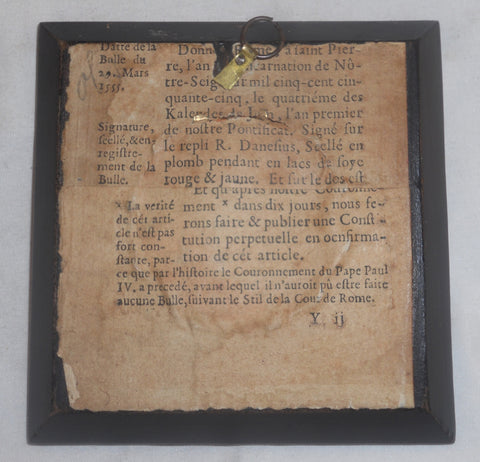 Datte de la
Bulle du
29. Mars
1555.
Signature,
scellé,& en-
registre-
ment de la
Bulle.
Donné à Rome, à saint Pier-
re, l'an de l'Incarnation de Nô-
tre-Seigneur mil cinq-cent cin-
quante-cinq, le quatriéme des
Kalendes de l'an premier
de nostre Pontificat. Signé sur
le repli R. Danesius, Scellé en
plomb pendant en lacs de soye
rouge & jaune. Et sur le dos est
Et qu'apres nostre Couronne-
ment x dans dix jours, nous fe-
rons faire & publier une Consti-
tution perpetuelle en ocnfirma-
tion de cét article.
x La verité
de cét arti-
cle n'est pas
fort con-
stante, par-
ce que par l'histoire le Couronnement du Pape Paul
IV. a precedé, avant lequel il n'auroit pû estre faite
aucune Bulle, suivant le Stil de la Cour de Rome.
Y ij